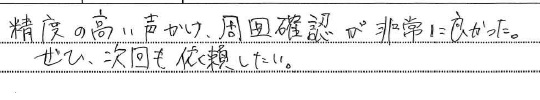 精度の高い声かけ、周囲確認が非常に良かった。
ぜひ、次回も依頼したい。